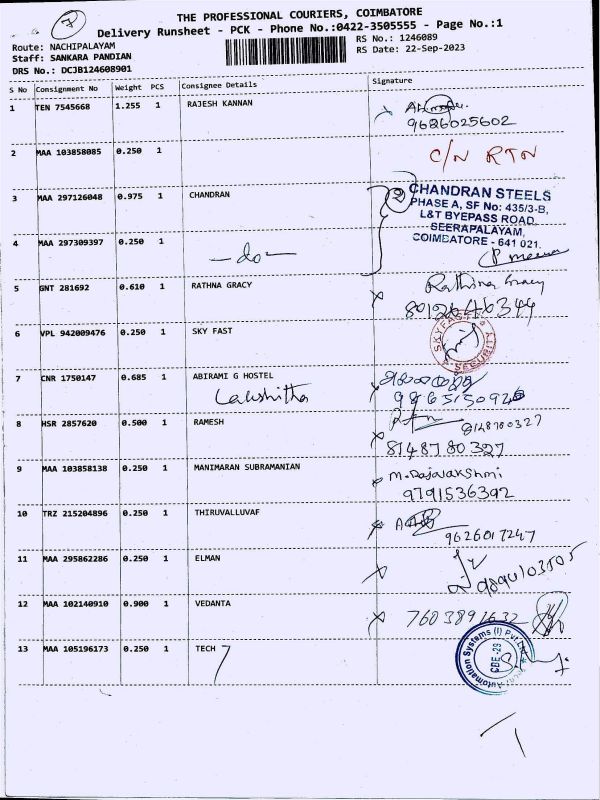 7
THE PROFESSIONAL COURIERS, COIMBATORE
Delivery Runsheet - PCK - Phone No.:0422-3505555 - Page No.:1
Route: NACHIPALAYAM
RS No.: 1246089
Staff: SANKARA PANDIAN
RS Date: 22-Sep-2023
DRS No.: DCJB124608901
S No Consignment No Weight PCS Consignee Details Signature
1 TEN 7545668 1.255 1 RAJESH KANNAN
9626025602
2 MAA 103858085 0.250 1 C/N RTN
3 MAA 297126048 0.975 1 CHANDRAN
2 CHANDRAN STEELS
PHASE A, SF No: 435/3-B,
L&T BYEPASS ROAD,
SEERAPALAYAM,
COIMBATORE - 641 021.
4 MAA 297309397 0.250 1
-do-
5 GNT 281692 0.610 1 RATHNA GRACY Rathna Gracy
8012646344
6 VPL 942009476 0.250 1 SKY FAST
SKYFAST SECURITY
7 CNR 1750147 0.685 1 ABIRAMI G HOSTEL
Lakshitha
8 HSR 2857620 0.500 1 RAMESH
8148780327
8148780327
9 MAA 103858138 0.250 1 MANIMARAN SUBRAMANIAN M.Rajalakshmi
9791536392
10 TRZ 215204896 0.250 1 THIRUVALLUVAF
9626017247
11 MAA 295862286 0.250 1 ELMAN
12 MAA 102140910 0.900 1 VEDANTA 7603891632
13 MAA 105196173 0.250 1 TECH 7
Automation Systems (I) Pvt Ltd
CBE-29